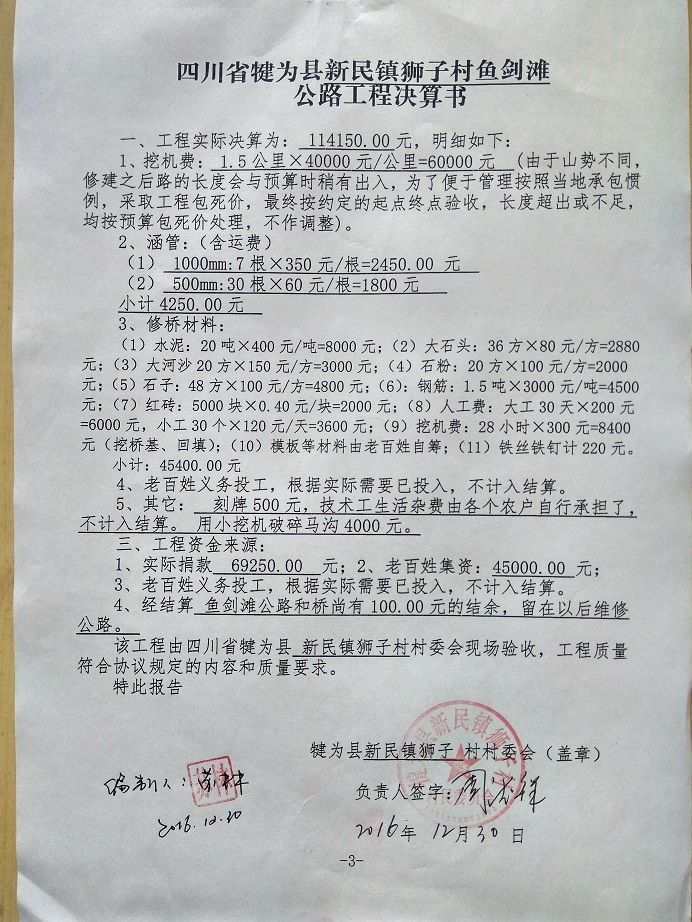 四川省犍为县新民镇狮子村鱼剑滩
公路工程决算书
一、工程实际决算为：114150.00元，明细如下：
1、挖机费：1.5公里×40000元/公里=60000元 （由于山势不同，
修建之后路的长度会与预算时稍有出入，为了便于管理按照当地承包惯
例，采取工程包死价，最终按约定的起点终点验收，长度超出或不足，
均按预算包死价处理，不作调整）。
2、涵管：（含运费）
（1） 1000mm:7根×350元/根=2450.00 元
（2） 500mm:30根×60元/根=1800元
小计4250.00元
3、修桥材料：
（1）水泥：20吨×400元/吨=8000元；（2）大石头：36方×80元/方=2880
元；（3）大河沙20方×150元/方=3000元；（4）石粉：20方×100元/方=2000
元；（5）石子：48方×100元/方=4800元；（6）：钢筋：1.5吨×3000元/吨=4500
元；（7）红砖：5000块×0.40元/块=2000元；（8）人工费：大工30天×200元
=6000元，小工30个×120元/天=3600元；（9）挖机费：28小时×300元=8400
元（挖桥基、回填）；（10）模板等材料由老百姓自筹；（11）铁丝铁钉计220元。
小计：45400.00元
4、老百姓义务投工，根据实际需要已投入，不计入结算。
5、其它： 刻牌500元，技术工生活杂费由各个农户自行承担了，
不计入结算。 用小挖机破碎马沟4000元。
三、工程资金来源：
1、实际捐款 69250.00 元；2、老百姓集资：45000.00元；
3、老百姓义务投工，根据实际需要已投入，不计入结算。
4、经结算 鱼剑滩公路和桥尚有100.00元的结余，留在以后维修
公路。
该工程由四川省犍为县 新民镇狮子村村委会现场验收，工程质量
符合协议规定的内容和质量要求。
特此报告
犍为县新民镇狮子 村村委会（盖章）
编制人：
负责人签字：
2016.12.30
2016年 12月30日
-3-